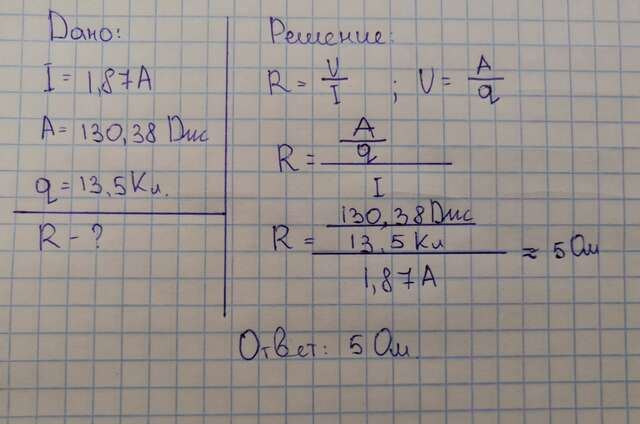 Дано:
I = 1,87 А
А = 130,38 Дж
q = 13,5 Кл.
R - ?
Решение:
R = V/I ; V = A/q
R = (A/q)/I
R = (130,38 Дж/13,5 Кл)/1,87 А ≈ 5 Ом
Ответ: 5 Ом.